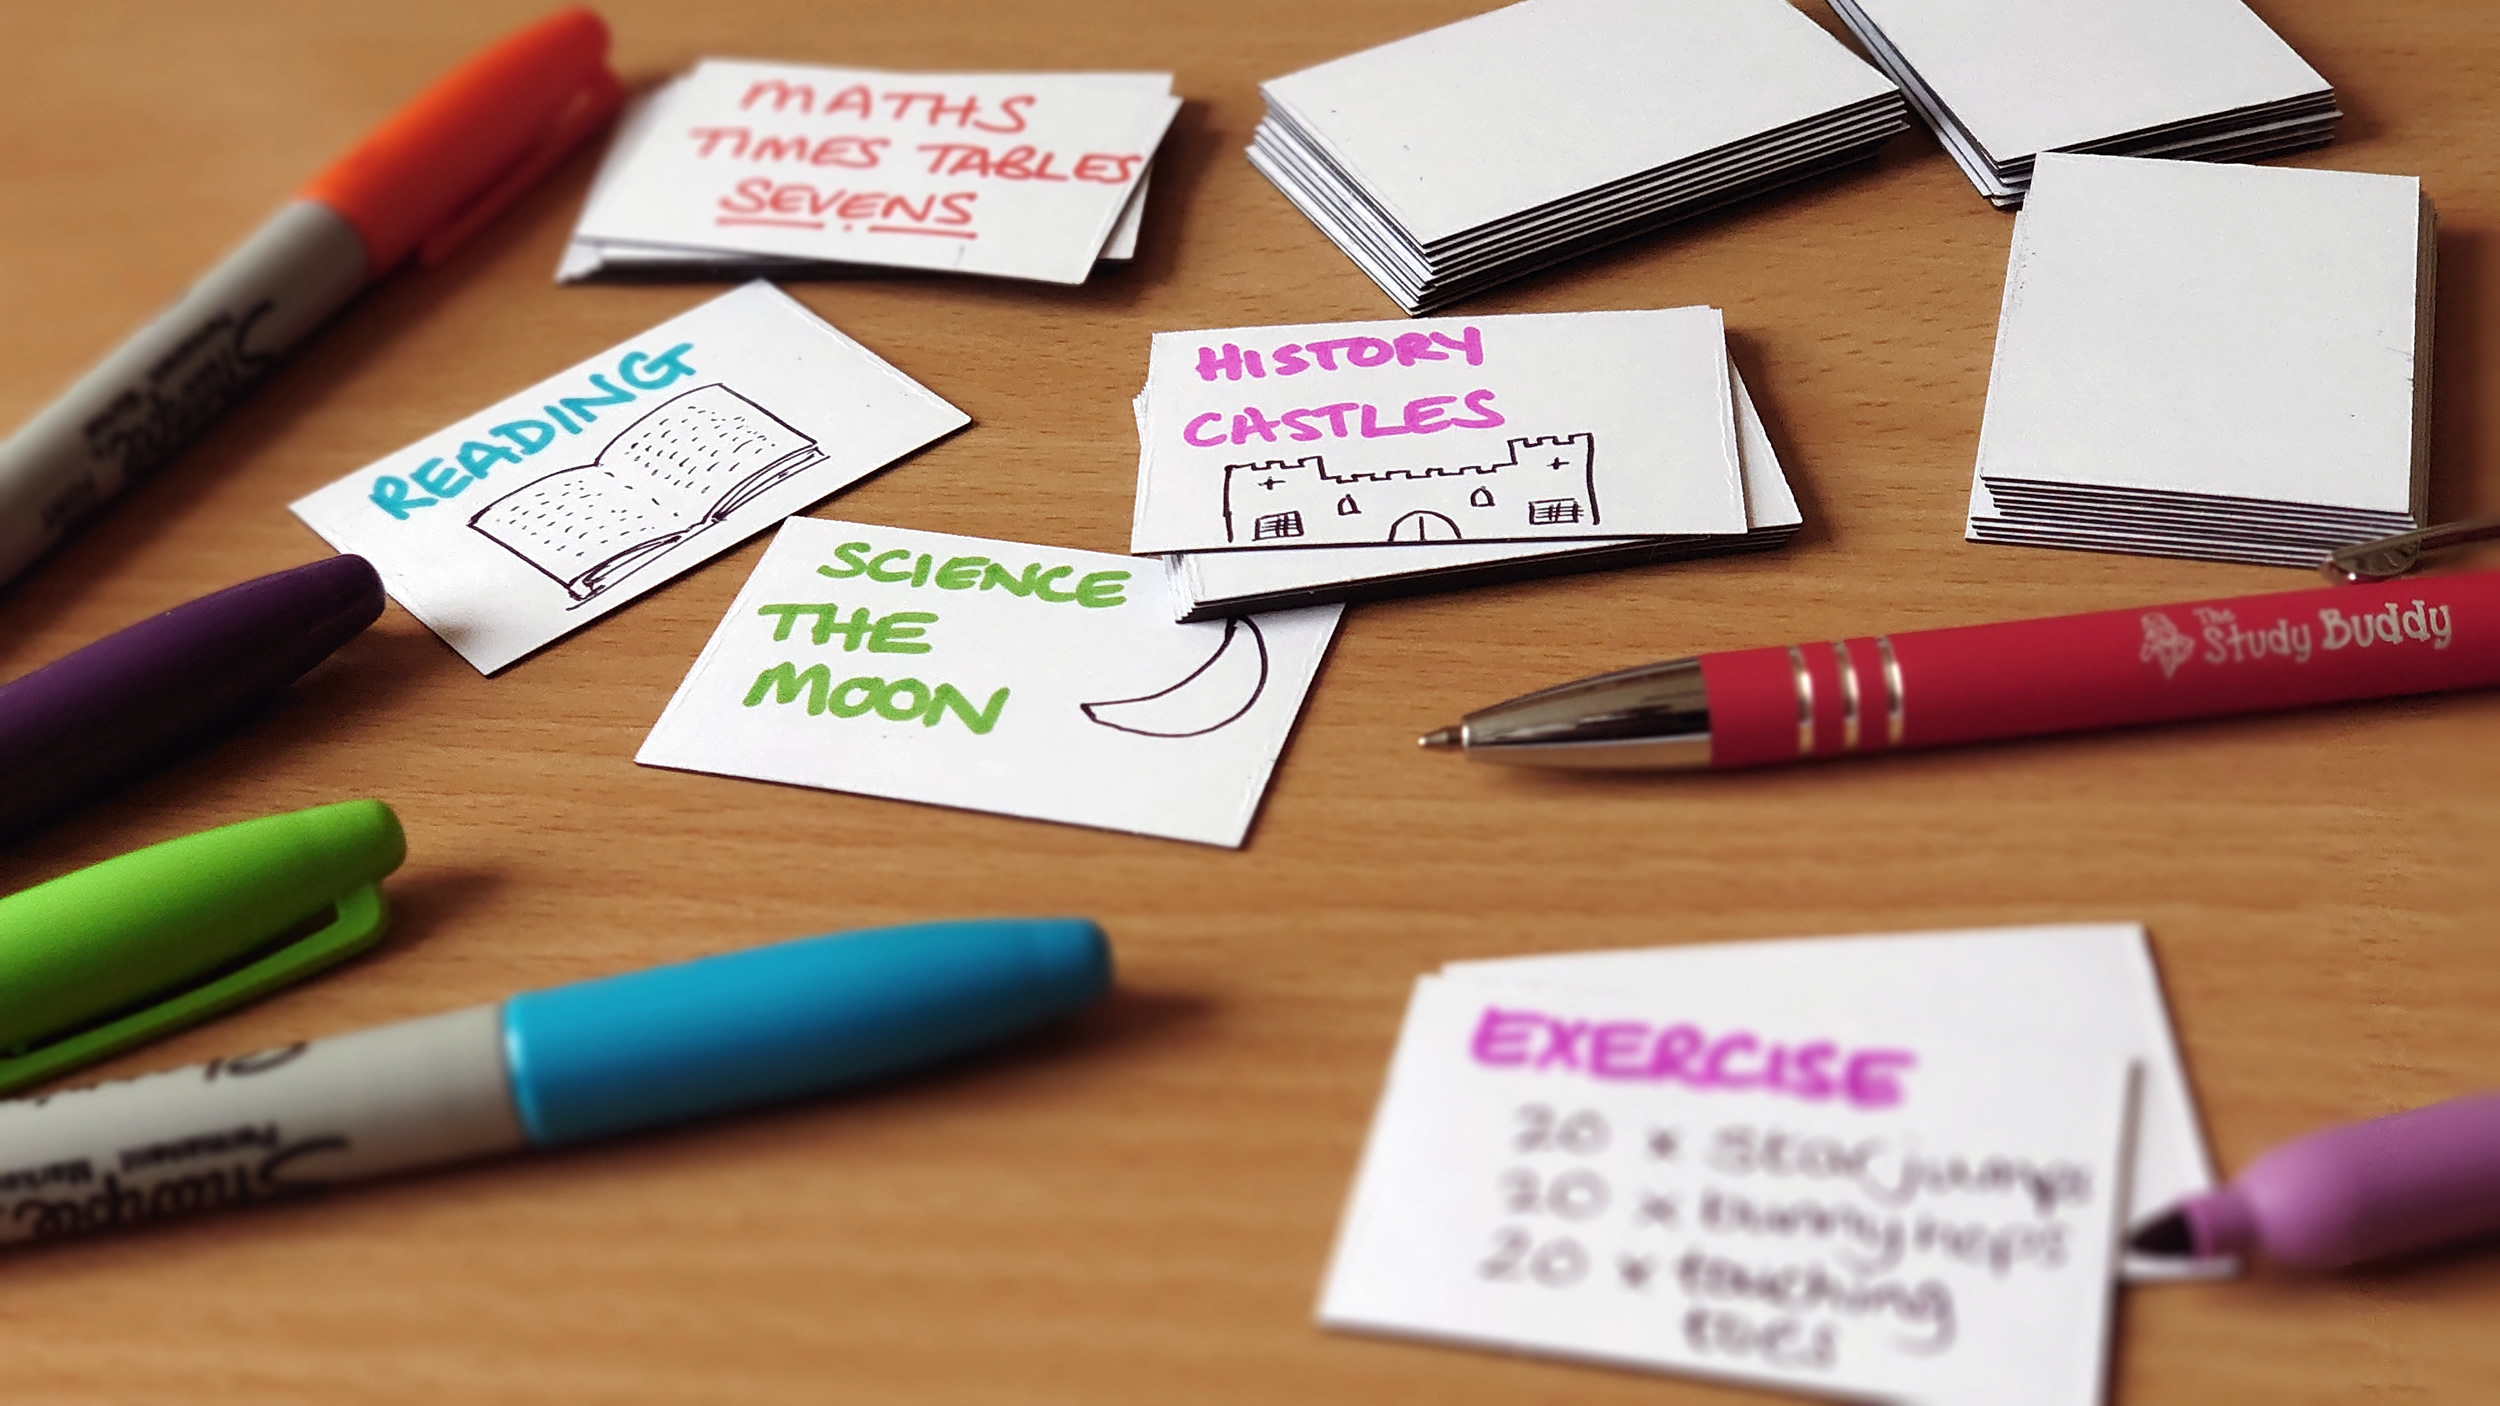 MATHS
TIMES TABLES
SEVENS
READING
HISTORY
CASTLES
SCIENCE
THE
MOON
The
Study Buddy
EXERCISE
20 x star jumps
20 x bunny hops
20 x touching
toes
Sharpie
Permanent Marker
Sharpie